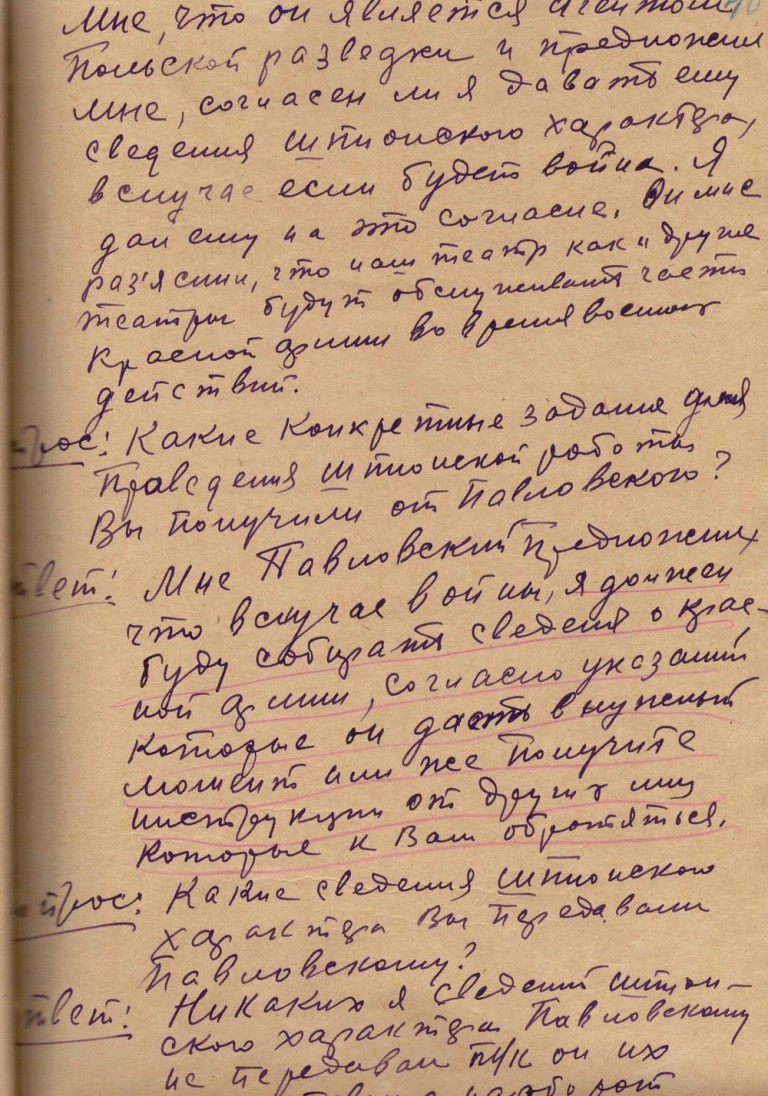 мне, что он является агентом
Польской разведки и предложил
мне, согласен ли я давать ему
сведения шпионского характера,
в случае если будет война. Я
дал ему на это согласие. Он мне
раз'яснил, что наш театр как и другие
театры будут обслуживать части
Красной армии во время военных
действий.
прос: Какие конкретные задания для
Праведения шпионской работы
Вы получили от Павловского?
твет: Мне Павловский предложил,
что в случае войны, я должен
буду собирать сведения о крас-
ной армии, согласно указаний
которые он даст в нужный
момент или же получите
инструкции от других лиц
которые к Вам обратяться.
прос: Какие сведения шпионского
характера Вы передавали
Павловскому?
твет: Никаких я сведений шпион-
ского характера Павловскому
не передавал т/к он их